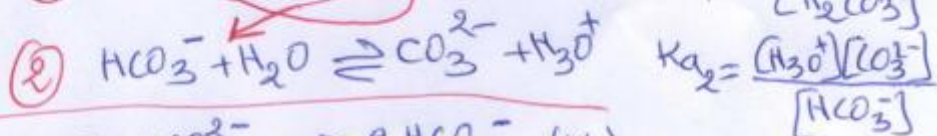 [H₂CO₃]
② HCO₃⁻ + H₂O ⇌ CO₃²⁻ + H₃O⁺ Ka₂ = [H₃O⁺][CO₃²⁻] / [HCO₃⁻]